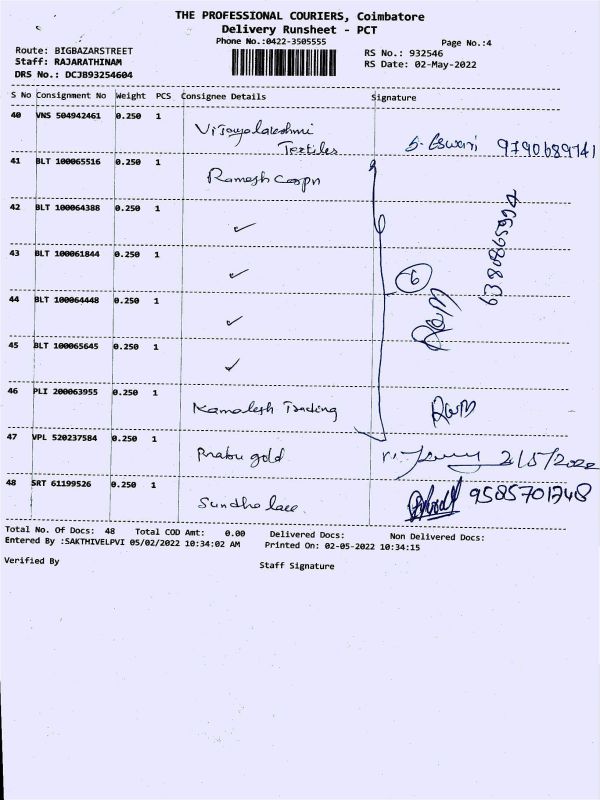 THE PROFESSIONAL COURIERS, Coimbatore
Delivery Runsheet - PCT
Phone No.:0422-3505555
Page No.:4
Route: BIGBAZARSTREET
RS No.: 932546
Staff: RAJARATHINAM
RS Date: 02-May-2022
DRS No.: DCJB93254604
S No Consignment No Weight PCS Consignee Details Signature
40 VNS 504942461 0.250 1
Vijayalakshmi
Textiles
9790689741
41 BLT 100065516 0.250 1
Ramesh Corpn
42 BLT 100064388 0.250 1
✓
43 BLT 100061844 0.250 1
✓
6
44 BLT 100064448 0.250 1
✓
Ram
45 BLT 100065645 0.250 1
✓
46 PLI 200063955 0.250 1
Kamalesh Trading
Ram
47 VPL 520237584 0.250 1
Prabu gold
2/5/2022
48 SRT 61199526 0.250 1
Sundha lace
9585701748
Total No. Of Docs: 48 Total COD Amt: 0.00 Delivered Docs: Non Delivered Docs:
Entered By :SAKTHIVELPVI 05/02/2022 10:34:02 AM Printed On: 02-05-2022 10:34:15
Verified By
Staff Signature